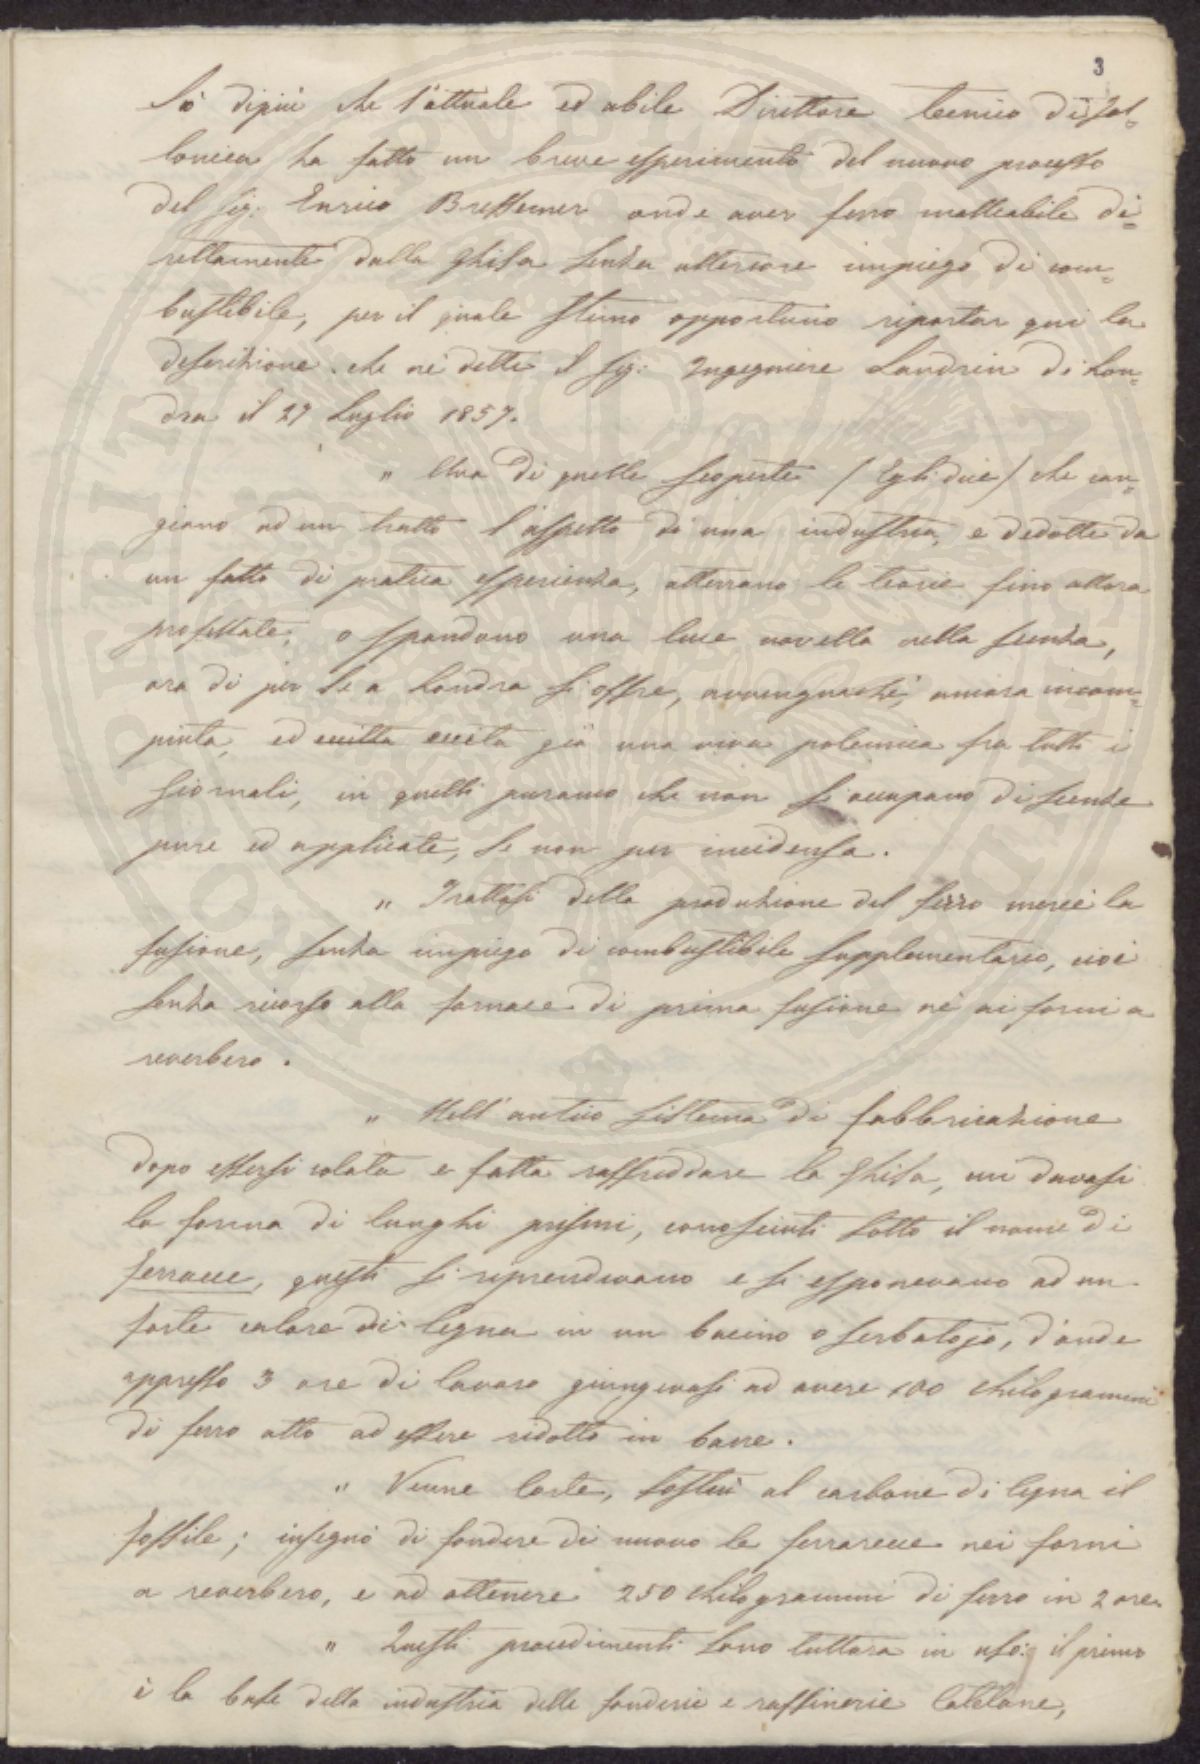 3
di più che l'attuale ed abile Direttore tecnico di Fol=
lonica ha fatto un breve esperimento del nuovo processo
del Sig: Enrico Bressemer onde aver ferro malleabile di=
rettamente dalla Ghisa senza ulteriore impiego di com=
bustibile, per il quale stimo opportuno riportar qui la
descrizione che né dette il Sig: Ingegniere Landrin di Lon=
dra il 27 Luglio 1857.
" Una di quelle scoperte / Egli dice / che can=
giano ad un tratto l'aspetto di una industria, e dedotte da
un fatto di pratica esperienza, atterrano le teorie fino allora
professate, o spandono una luce novella nella scienza,
ora di per se a Londra si offre, avvengnachè, ancora incom=
piuta, ed eccitta eccita già una viva polemica fra tutti i
Giornali, in quelli puranco che non si occupano di scienze
pure ed applicate, se non per incidensa.
" Trattasi della produzione del ferro mercè la
fusione, senza impiego di combustibile supplementario, cioè
senza ricorso alla fornace di prima fusione nè ai forni a
reverbero.
" Nell' antico sistema di fabbricazione
dopo essersi colata e fatta raffreddare la Ghisa, cui davasi
la forma di lunghi prismi, conosciuti sotto il nome di
ferracce, questi si riprendevano e si esponevano ad un
forte calore di legna in un bacino o serbatojo, d'onde
appresso 3 ore di lavoro giungevasi ad avere 100 chilogrammi
di ferro atto ad essere ridotto in barre.
" Venne Corte, sostituì al carbone di legna il
fossile; insegnò di fondere di nuovo le ferracce nei forni
a reverbero, e ad ottenere 250 chilogrammi di ferro in 2 ore.
" Questi procedimenti sono tuttora in uso: il primo
è la base della industria delle fonderie e raffinerie Catelane,